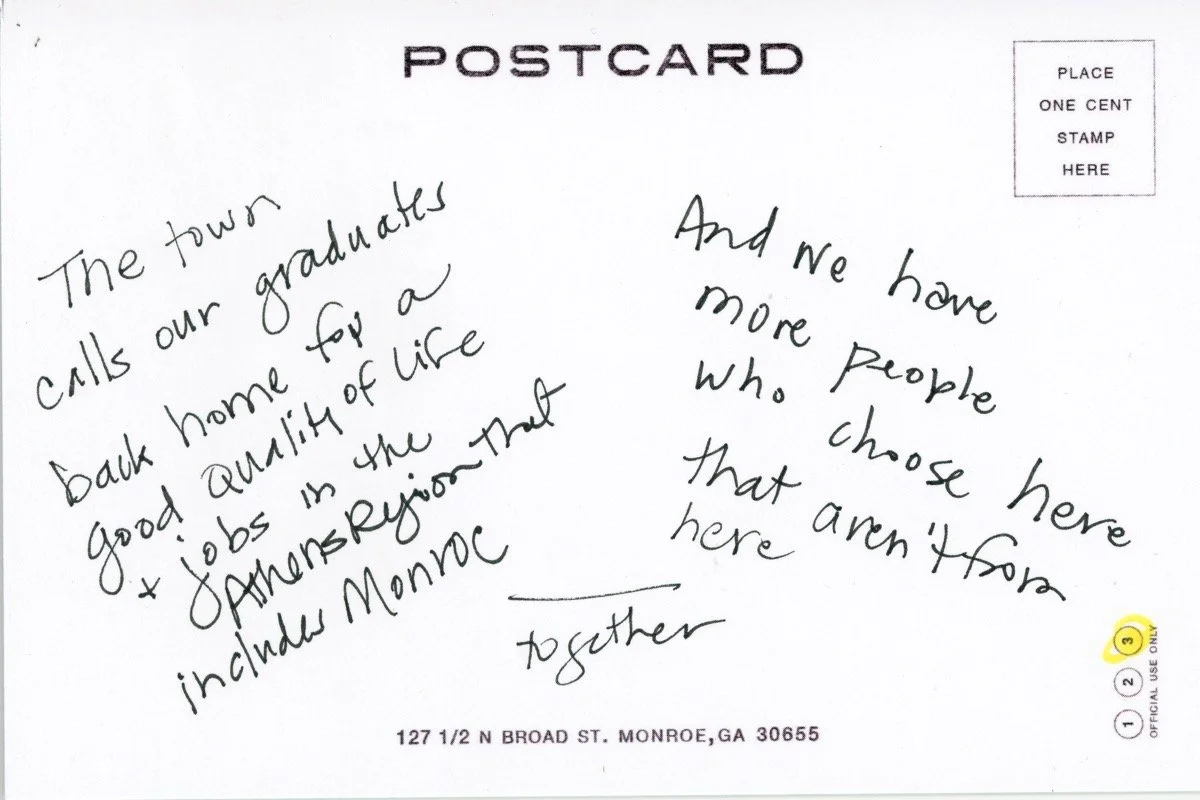 POSTCARD
PLACE
ONE CENT
STAMP
HERE
The town
calls our graduates
back home for a
good quality of life
+ jobs in the
Athens Region that
includes Monroe
And we have
more people
who choose here
that aren't from
here
together
127 1/2 N BROAD ST. MONROE,GA 30655
1 2 3
OFFICIAL USE ONLY